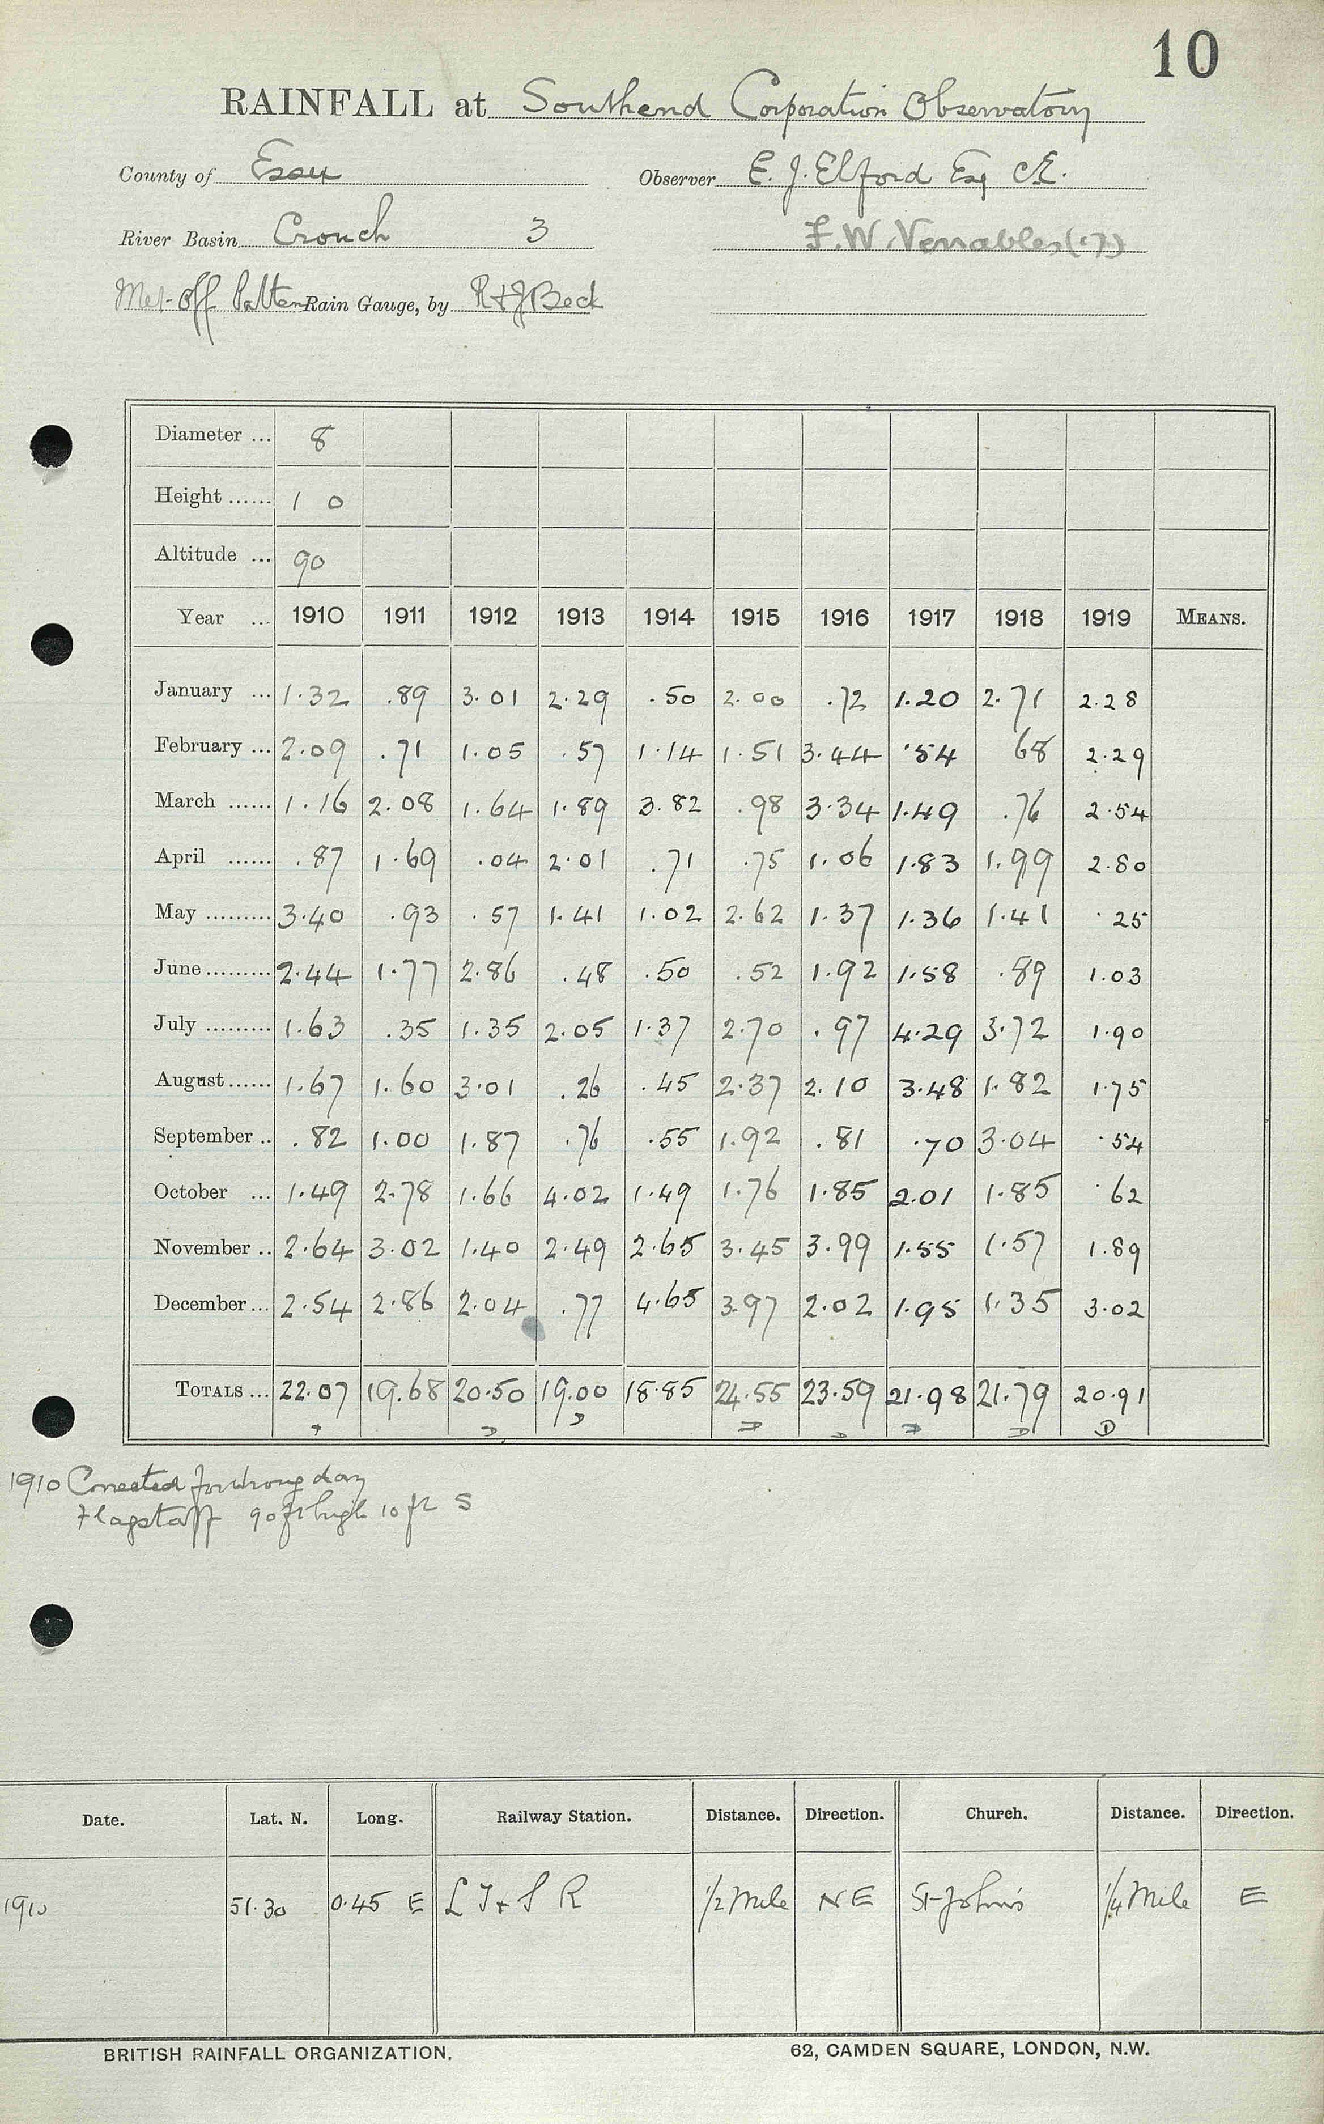 10
RAINFALL at Southend Corporation Observatory
County of Essex Observer E. J. Elford Esq CE.
River Basin Crouch 3 F. W. Venables (17)
Met. Off Pattern Rain Gauge, by R & J Beck
Diameter ... 8
Height ...... 1 0
Altitude ... 90
Year ... 1910 1911 1912 1913 1914 1915 1916 1917 1918 1919 MEANS.
January ... 1.32 .89 3.01 2.29 .50 2.00 .72 1.20 2.71 2.28
February ... 2.09 .71 1.05 .57 1.14 1.51 3.44 .54 68 2.29
March ...... 1.16 2.08 1.64 1.89 3.82 .98 3.34 1.49 .76 2.54
April ...... .87 1.69 .04 2.01 .71 .75 1.06 1.83 1.99 2.80
May ......... 3.40 .93 .57 1.41 1.02 2.62 1.37 1.36 1.41 .25
June ......... 2.44 1.77 2.86 .48 .50 .52 1.92 1.58 .89 1.03
July ......... 1.63 .35 1.35 2.05 1.37 2.70 .97 4.29 3.72 1.90
August ...... 1.67 1.60 3.01 .26 .45 2.37 2.10 3.48 1.82 1.75
September .. .82 1.00 1.87 .76 .55 1.92 .81 .70 3.04 .54
October ... 1.49 2.78 1.66 4.02 1.49 1.76 1.85 2.01 1.85 .62
November .. 2.64 3.02 1.40 2.49 2.65 3.45 3.99 1.55 1.57 1.89
December ... 2.54 2.86 2.04 .77 4.65 3.97 2.02 1.95 1.35 3.02
TOTALS ... 22.07 19.68 20.50 19.00 18.85 24.55 23.59 21.98 21.79 20.91
D D D D D D D D
1910 Corrected for wrong day
Flagstaff 90 ft high 10 ft S
Date. Lat. N. Long. Railway Station. Distance. Direction. Church. Distance. Direction.
1910 51.30 0.45 E L T & S R 1/2 Mile NE St Johns 1/4 Mile E
BRITISH RAINFALL ORGANIZATION. 62, CAMDEN SQUARE, LONDON, N.W.